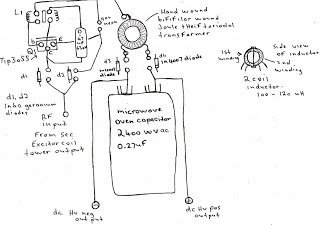 L1
1
2
3
Hand wound
bifilar wound
Joule thief toroidal
transformer
gas
neon
C
B
E
Tip3055
d1
d2
d3
1n4007 diode
d4
1n4007 diode
1st
winding
Side view
of inductor
2nd
winding
2 coil
inductor-
100 - 120 uH
d1, d2
in60 geranum
diodes
RF
input
From sec
Excitor coil
tower output
microwave
oven capacitor
2400 wvac
0.27uF
dc Hv neg
output
dc Hv pos
output